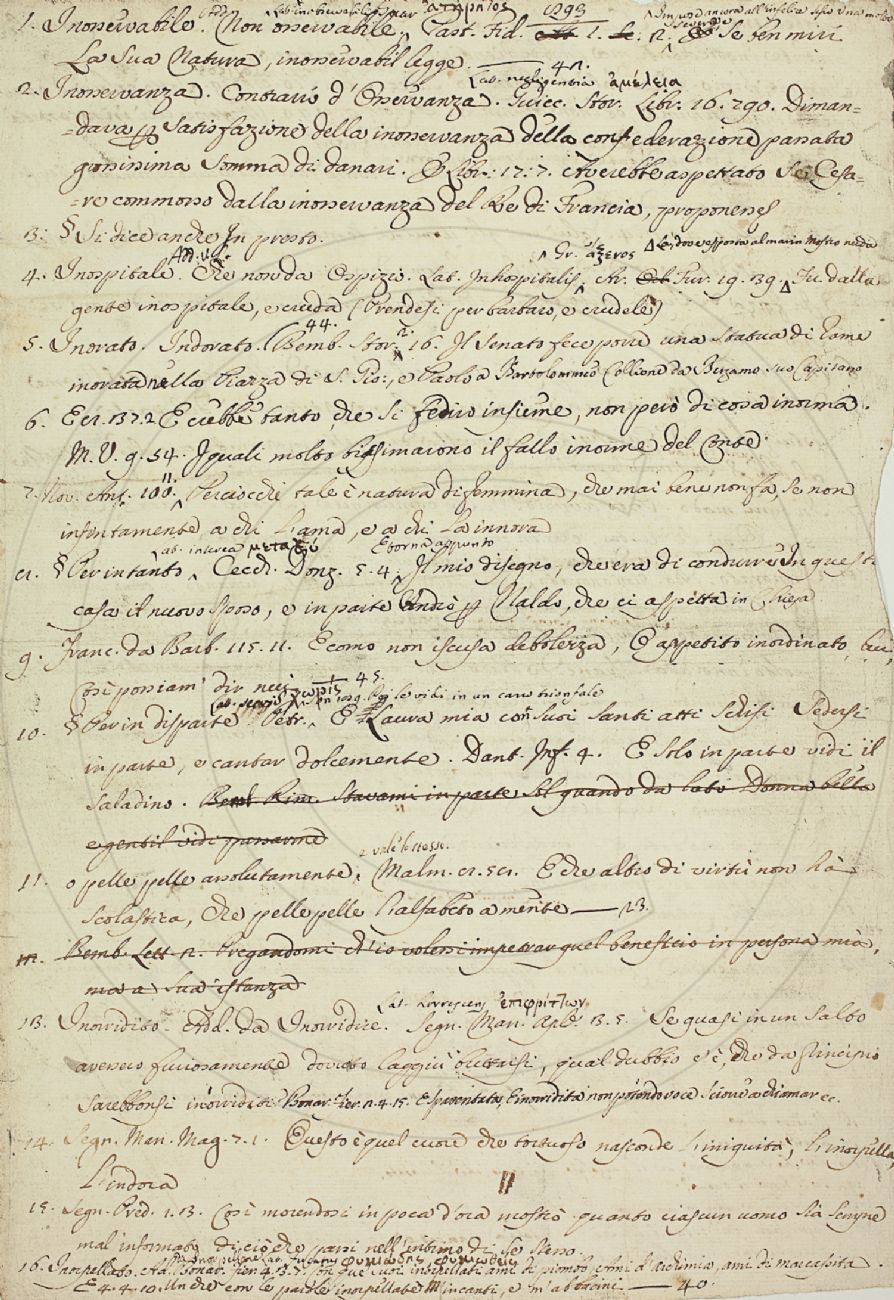 1. Inosservabile. Add. Non osservabile. Lat. inobservabilis. Past. Fid. 1. 2. Se ben miri
La Sua Natura, inosservabil legge.
2. Inosservanza. Contrario d'Osservanza. Lat. negligentia ἀμέλεια. Guicc. Stor. Libr. 16. 790. Diman-
=dava p satisfazione della inosservanza della confederazione passata
grossissima somma di danari. E Libr. 17. 7. Averebbe aspettato se Cesa-
=re commosso dalla inosservanza del Re di Francia, proponesse
3. § Si dice anche In presto.
4. Inospitale. Add. Che non da Ospizio. Lat. Inhospitalis, Gr. ἄξενος Ar. Fur. 19. 39. Fu dalla
gente inospitale, e cruda (Prendesi per barbaro, e crudele)
5. Inorato. Indorato. (Bemb. Stor. 2. 16. 44. Il Senato fece porre una statua di rame
inorata nella Piazza di S. Gio:, e Paolo a Bartolommeo Collione da Bergamo suo Capitano
6. E cr. 137. 2 E crebbe tanto, che si fediro insieme, non però di cosa inorma.
M. V. 9. 54. I quali molto biasimarono il fallo inorme del Conte
7. Nov. Ant. 100. 11. Perciocchè tale è natura di femmina, che mai bene non fa, se non
infintamente, a chi l'ama, e a chi la innora
8. § Per intanto. Lat. interea μεταξύ Cecch. Donz. 5. 4. E torna appunto Il mio disegno, ch'era di condurre In questa
casa il nuovo sposo, e in parte andrò p Naldo, che ci aspetta in Chiesa
9. Franc. da Barb. 115. 11. E como non iscusa debolezza, E appetito inordinato,
così possiam' dir — 45.
10. § Per in disparte Lat. seorsis χωρίς Petr. Son. 189. Poi le vidi in un carro trionfale E Laura mia con suoi santi atti schifi Sedersi
in parte, e cantar dolcemente. Dant. Inf. 4. E solo in parte vidi il
Saladino. Bemb. Rim. Stavami in parte sol quando da lato Donna bella
e gentil vidi passarme
11. o pelle pelle assolutamente, vale lo stesso. Malm. 8. 58. E che altro di virtù non hà
Scolastica, che pelle pelle l'alfabeto a mente — 23.
12. Bemb. Lett. 2. Pregandomi ch'io volessi impetrar quel beneficio in persona mia,
ma a sua istanza
13. Inorridito. Add. da Inorridire. Lat. horrescens ἐπιφρίττων Segn. Man. Apl. 13. 5. Se quasi in un salto
avessero furiosamente dovuto laggiù buttarsi, qual dubbio v'è, che da principio
sarebbonsi inorriditi Bonar. Fier. 2. 4. 15. E spaventata, E inorridita non potendo voce sciorre a chiamar ec.
14. Segn. Man. Mag. 7. 1. Questo è quel cuore che tortuoso nasconde l'iniquità, l'inorpella,
L'indora
15. Segn. Pred. 1. 13. Così morendosi in poca d'ora mostrò quanto ciascun uomo stà sempre
mal informato di ciò che passi nell'intimo di se stesso.
16. Inorpellato. Add. Bonar. Fier. 4. 3. 7. Con que' suoi inorpellati ami di piombo, ami d'archimia, ami di marcassita.
E 4. 4. 10. Un che con le parole inorpellate M'incanti, e m'abbacini — 40.